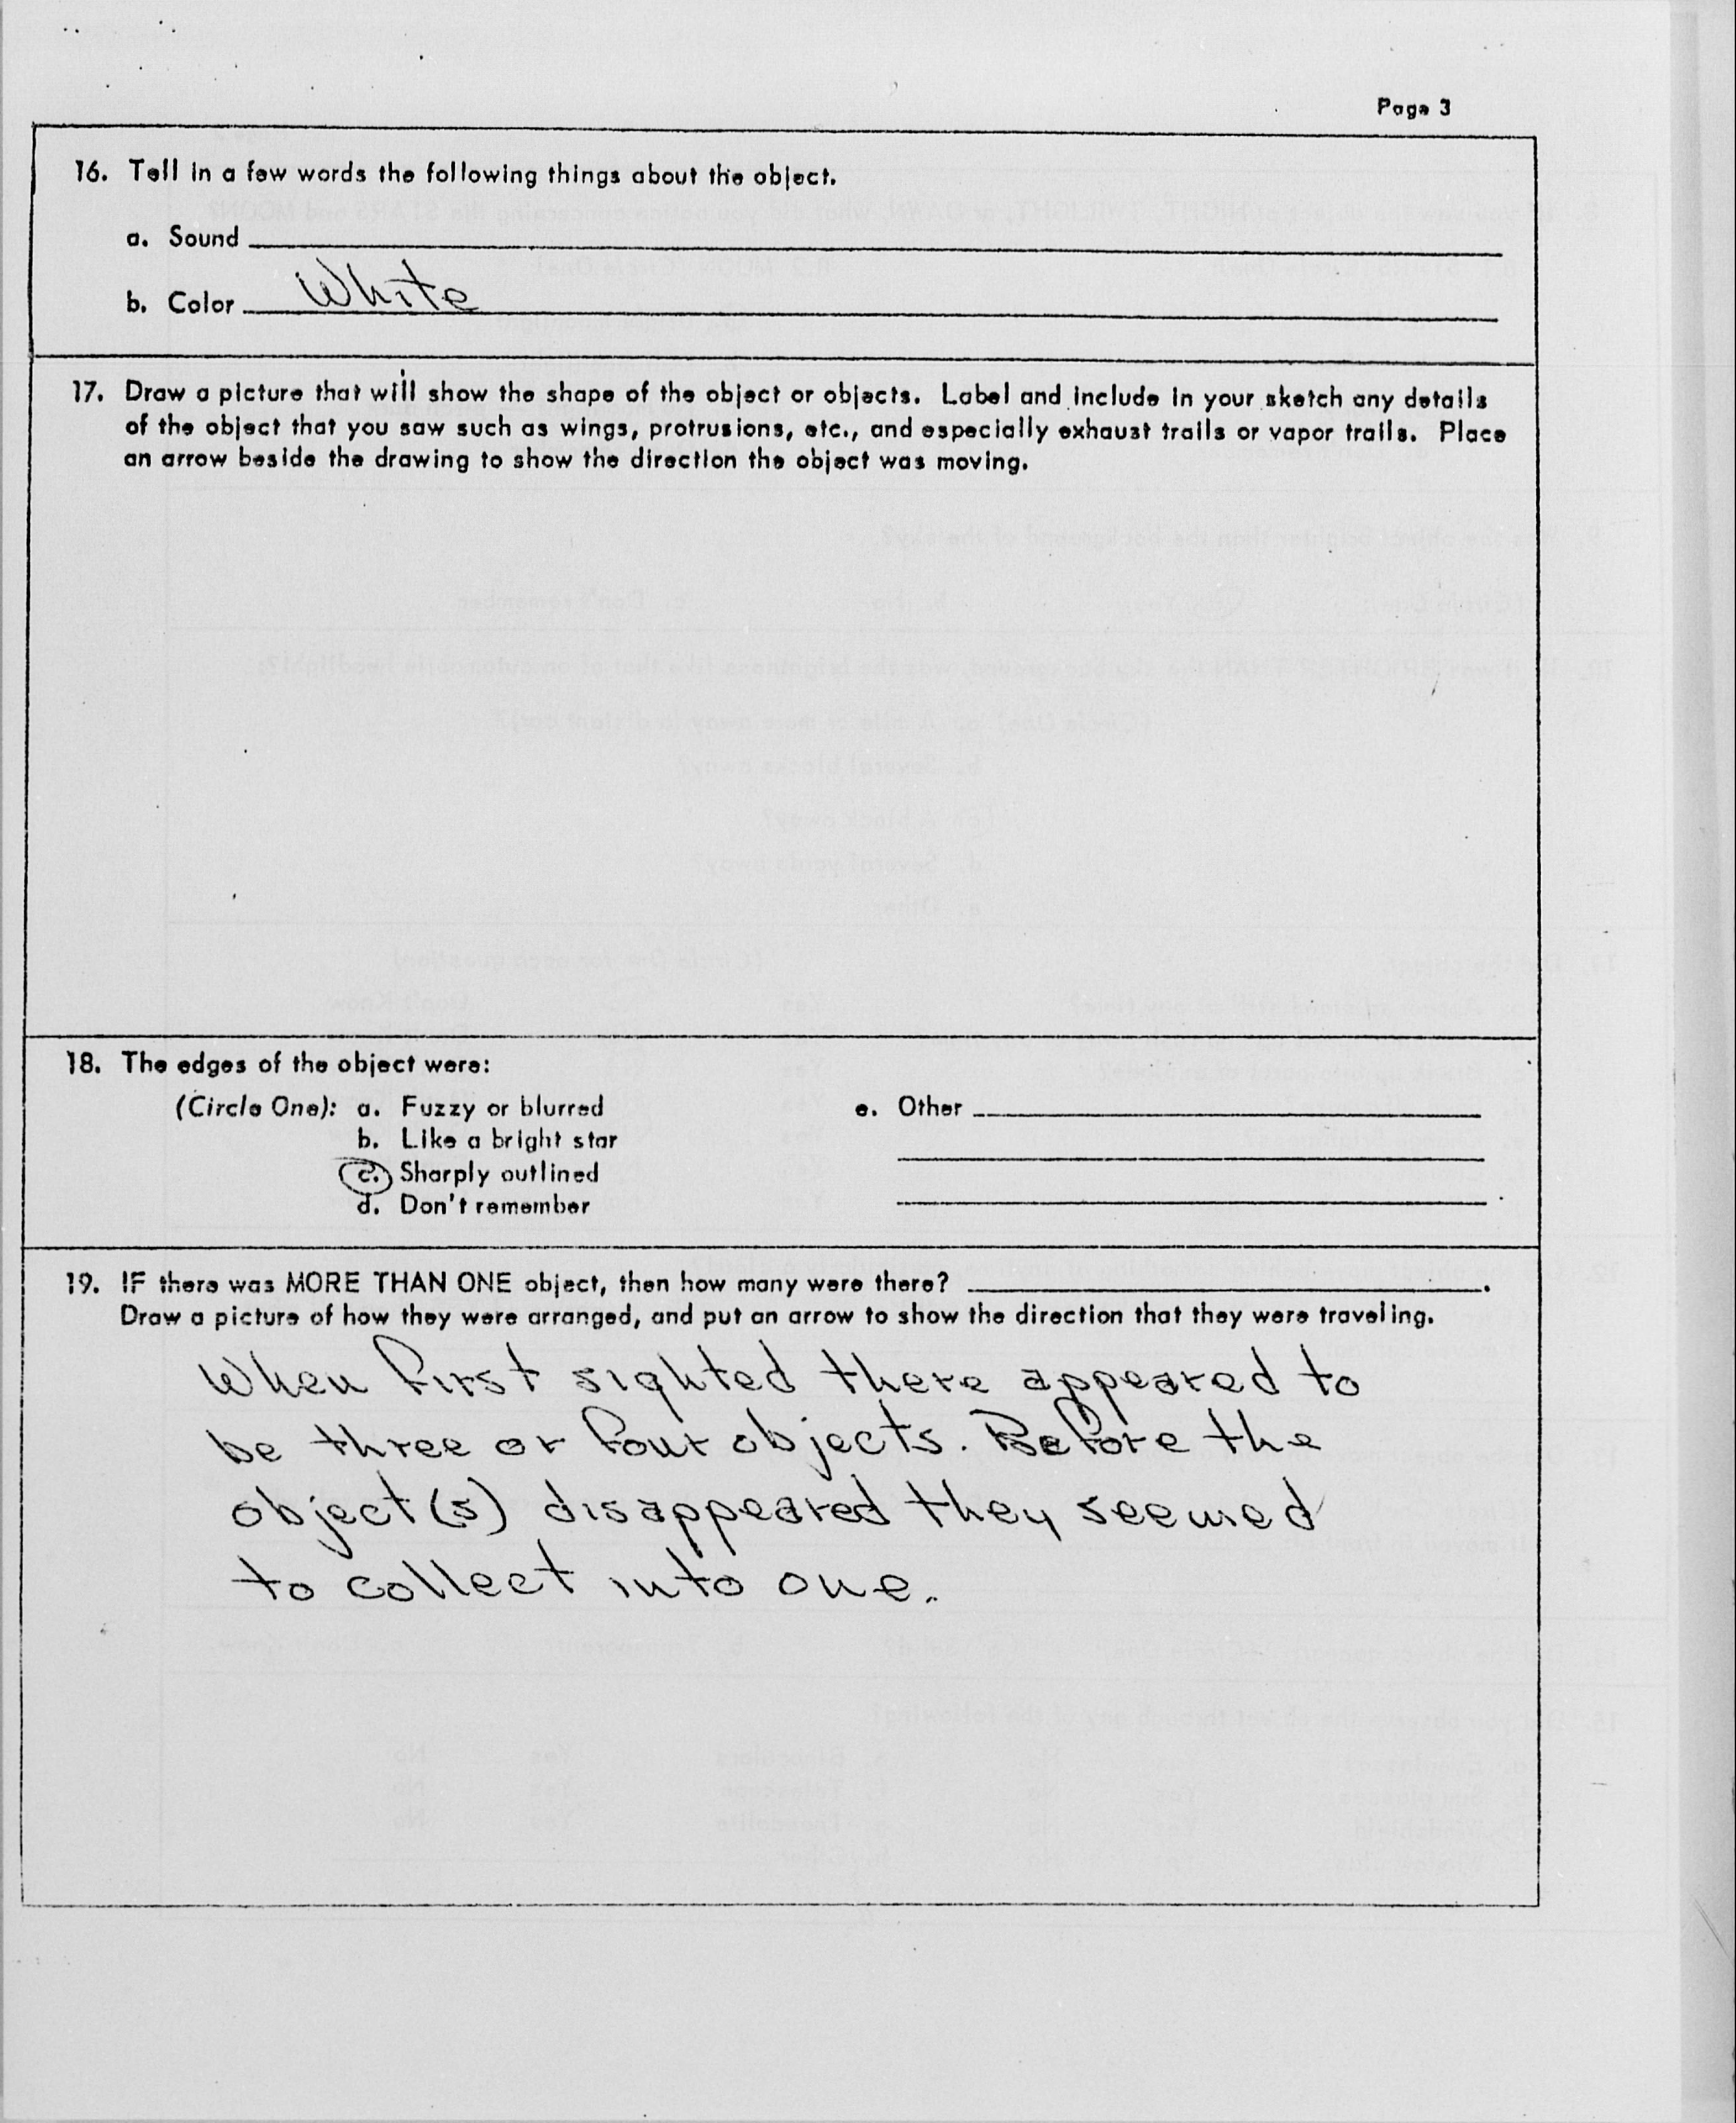 Page 3
16. Tell in a few words the following things about the object.
a. Sound
b. Color White
17. Draw a picture that will show the shape of the object or objects. Label and include in your sketch any details
of the object that you saw such as wings, protrusions, etc., and especially exhaust trails or vapor trails. Place
an arrow beside the drawing to show the direction the object was moving.
18. The edges of the object were:
(Circle One): a. Fuzzy or blurred e. Other
b. Like a bright star
c. Sharply outlined
d. Don't remember
19. IF there was MORE THAN ONE object, then how many were there?
Draw a picture of how they were arranged, and put an arrow to show the direction that they were traveling.
When first sighted there appeared to
be three or four objects. Before the
object(s) disappeared they seemed
to collect into one.